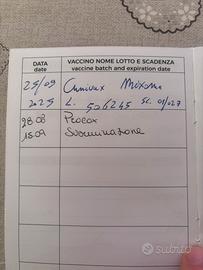 DATA
date
VACCINO NOME LOTTO E SCADENZA
vaccine batch and expiration date
25/09
2025
L. 506245 SC. 01/027
28.08 Procox
15.09 Sverminazione
subito